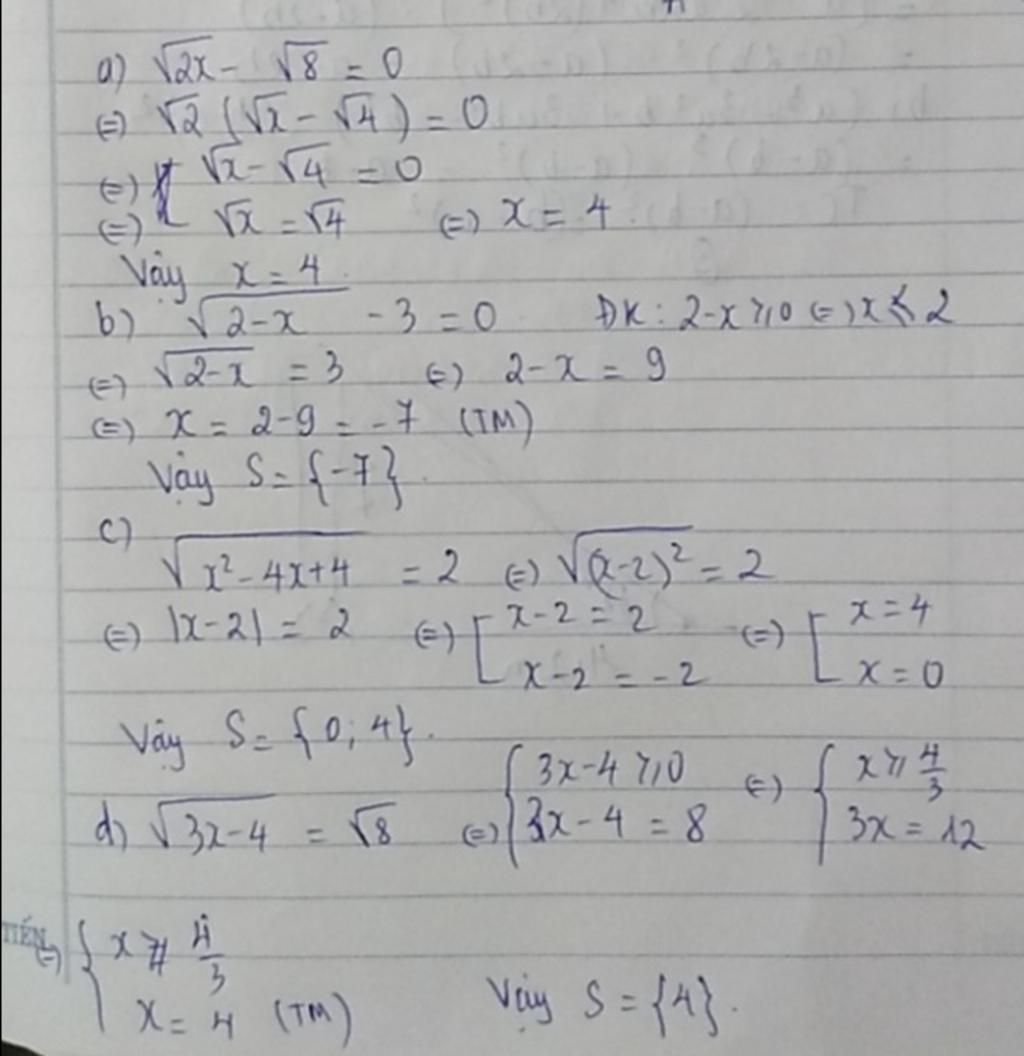 a) √2x - √8 = 0
(=) √2 (√x - √4) = 0
(=) √x - √4 = 0
(=) √x = √4 (=) x = 4
Vậy x = 4.
b) √(2-x) - 3 = 0 ĐK: 2-x ≥ 0 (=) x ≤ 2
(=) √(2-x) = 3 (=) 2-x = 9
(=) x = 2-9 = -7 (TM)
Vậy S = {-7}.
c)
√(x² - 4x + 4) = 2 (=) √((x-2)²) = 2
(=) |x-2| = 2 (=) [ x-2 = 2 (=) [ x = 4
x-2 = -2 x = 0
Vậy S = {0; 4}.
d) √(3x-4) = √8 (=) { 3x-4 ≥ 0 (=) { x ≥ 4/3
3x - 4 = 8 3x = 12
TIẾN
(=) { x ≥ 4/3
x = 4 (TM) Vậy S = {4}.